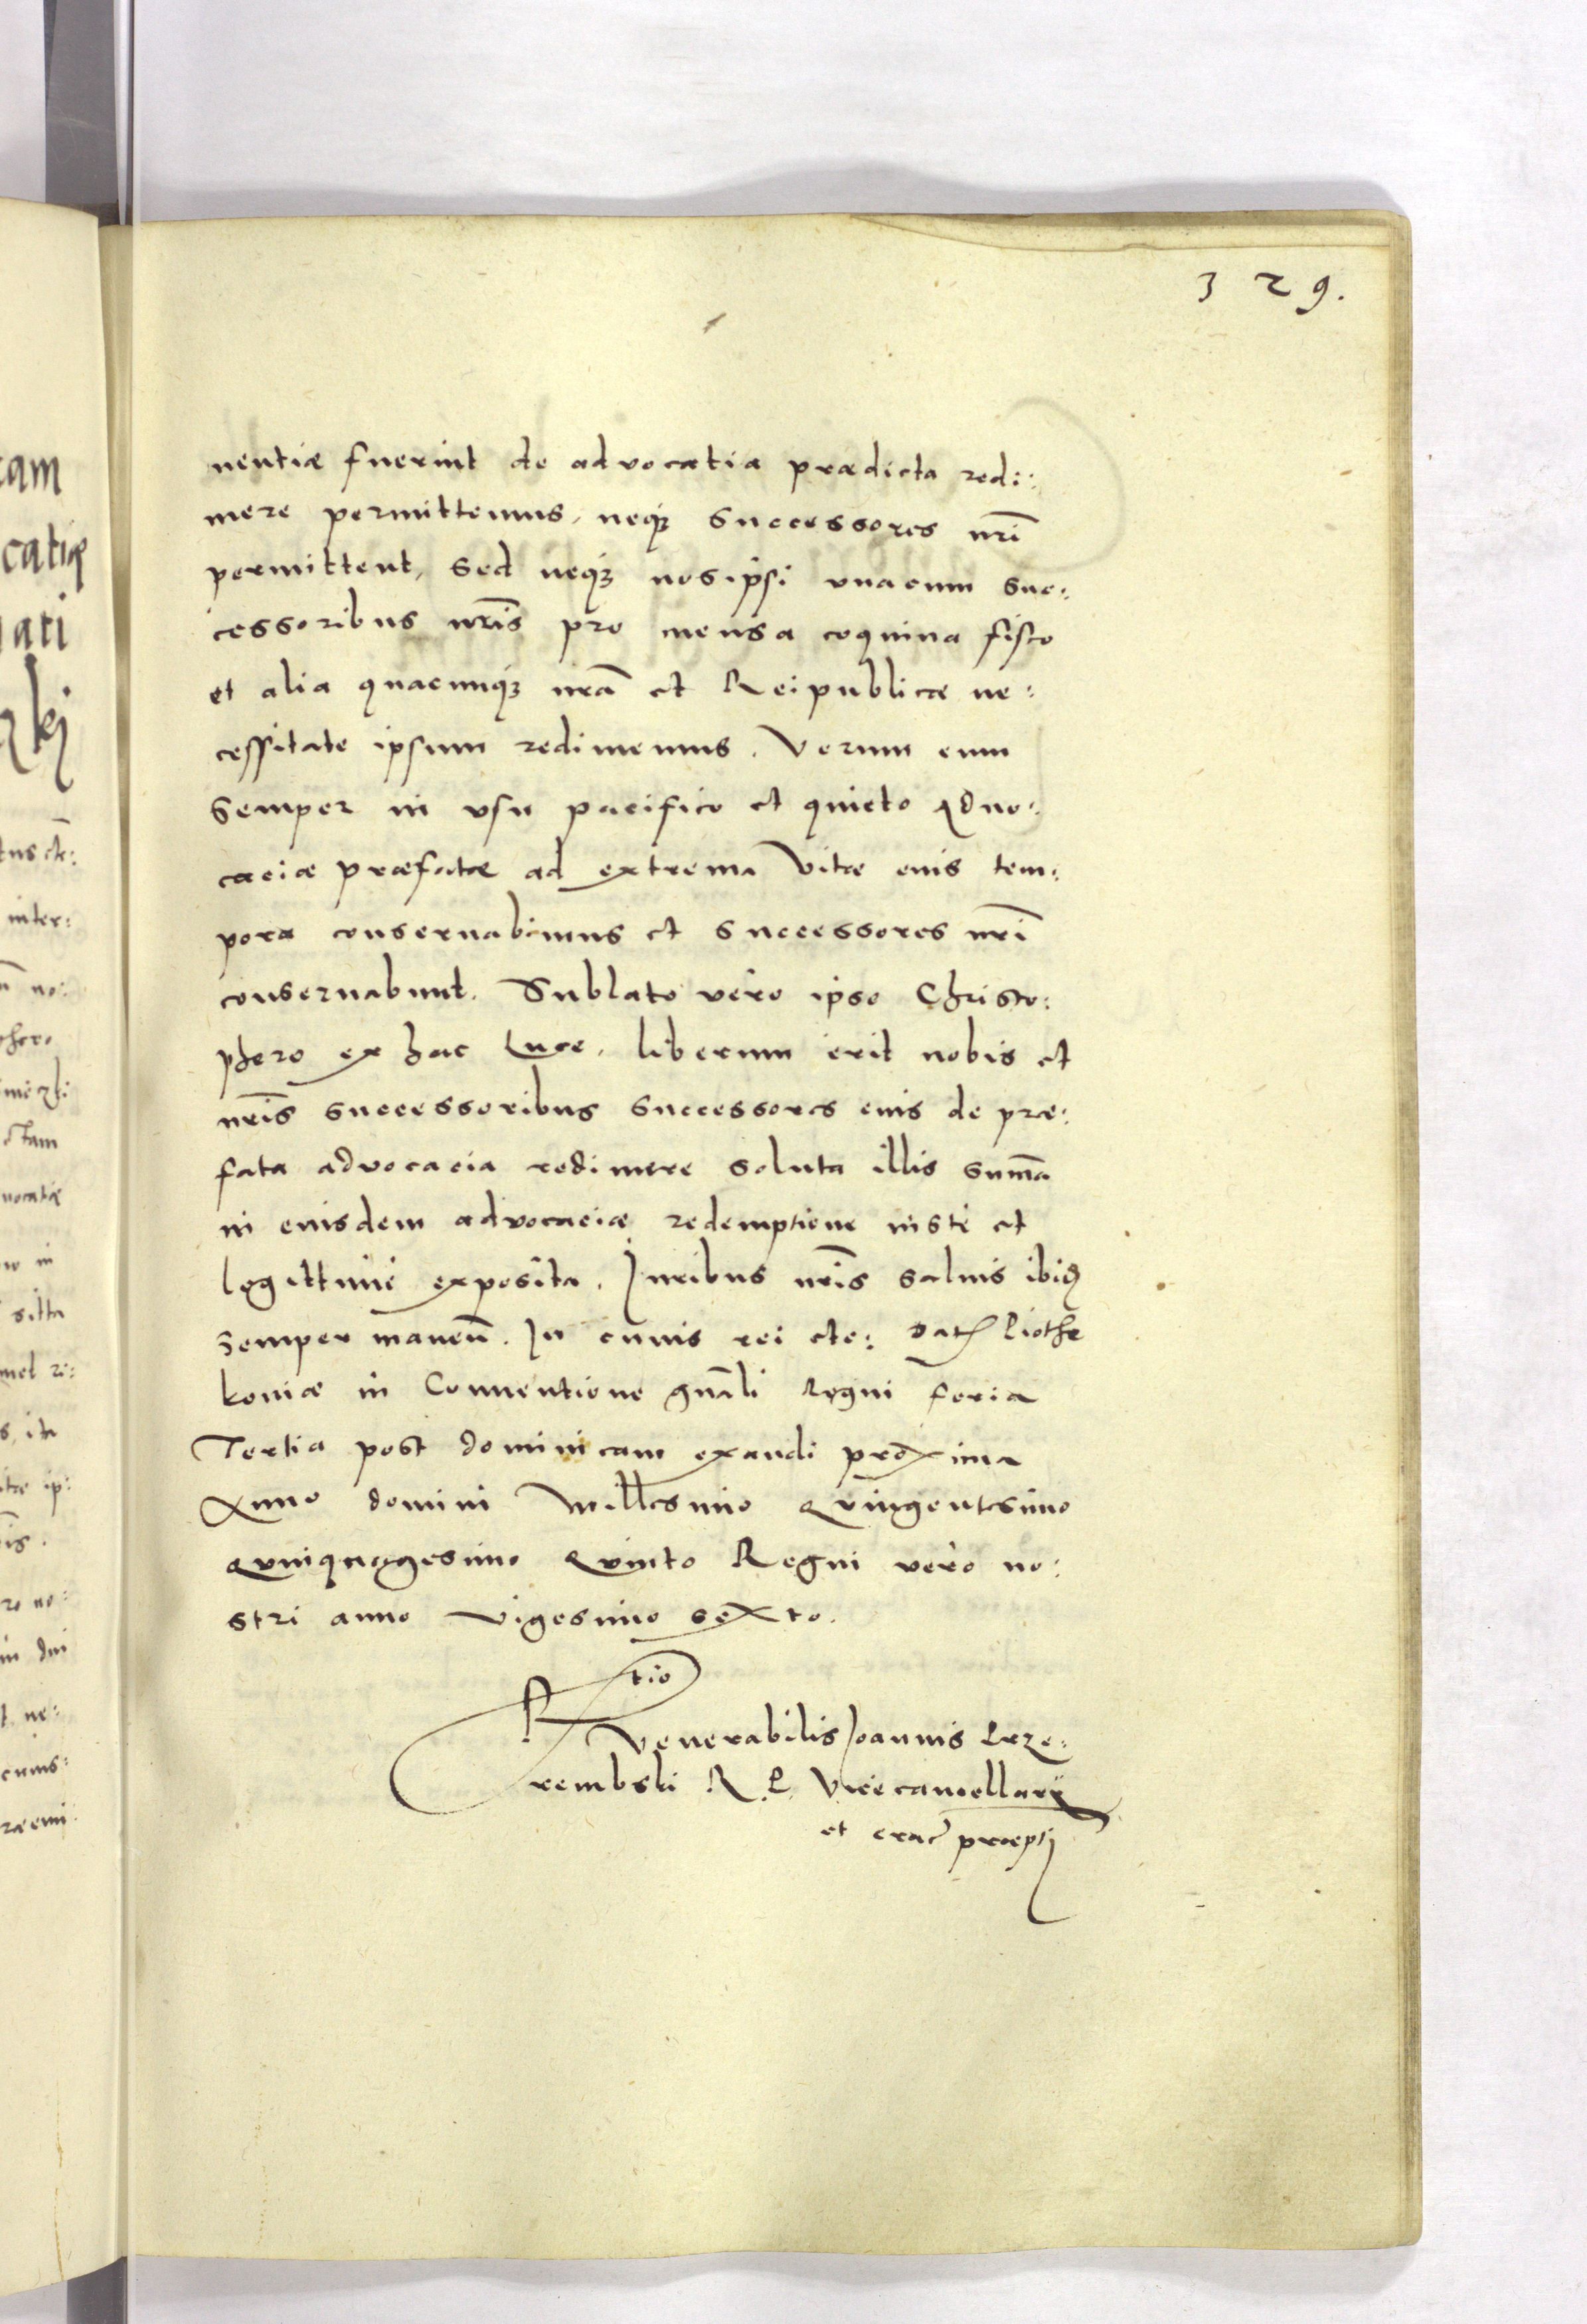 329.
nentiæ fuerint de advocatia prædicta redi:
mere permittemus, neq3 successores nrĩ
permittent, Sed neq3 nos ipsi vnacum suc:
cessoribus nrĩs pro mensa coquina fisco
et alia quacumq3 nrã et Reipublicæ ne:
cessitate ipsum redimemus. Verum eum
semper in vsu pacifico et quieto Aduo:
caciæ præfatæ ad extrema vitæ eius tem:
pora conseruabimus et successores nrĩ
conseruabunt. Sublato vero ipso Christo:
phero ex hac Luce, liberum erit nobis et
nrĩs successoribus successores eius de præ:
fata advocacia redimere soluta illis sum̃a
in eiusdem advocaciæ redemptione iuste et
legittime exposita. Iuribus nrĩs saluis ibid
semper maneñ. In cuius rei etc: Dat Piothr
koviæ in Conuentione gnãli Regni feria
Tertia post dominicam exaudi proxima
Anno domini Millesimo Quingentesimo
Quinquagesimo Quinto Regni vero no:
stri anno vigesimo sexto.
Rtio
Venerabilis Joannis Prze:
rembski R. P. Vicecancellarij
et crac̃ præpti
cam
catiæ
nati
ki
tus etc:
inter:
no:
uocatæ
in
sitta
s, ita
ip:
no:
ne:
cuius: